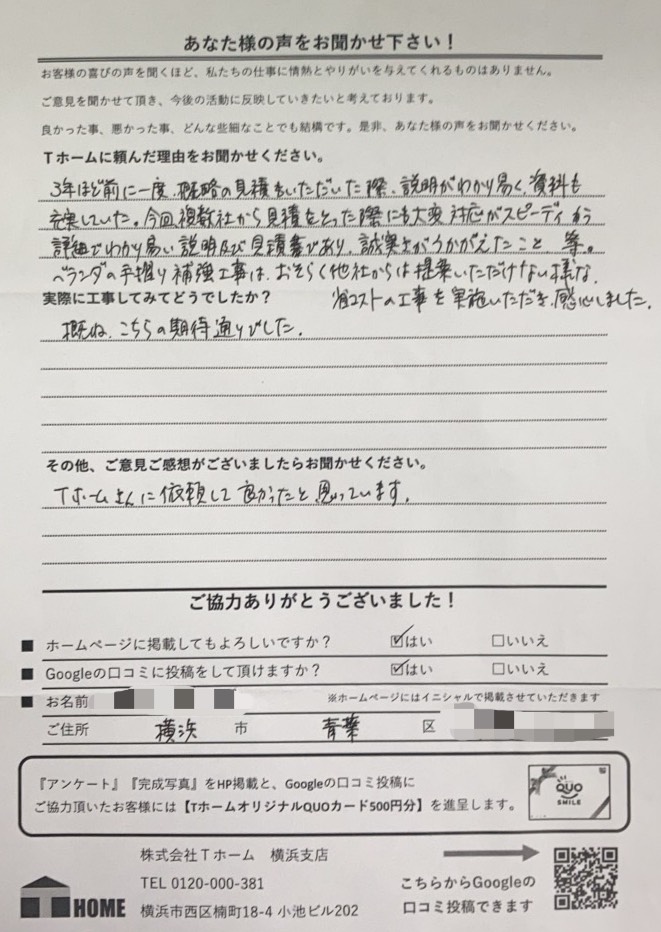 あなた様の声をお聞かせ下さい！
お客様の喜びの声を聞くほど、私たちの仕事に情熱とやりがいを与えてくれるものはありません。
ご意見を聞かせて頂き、今後の活動に反映していきたいと考えております。
良かった事、悪かった事、どんな些細なことでも結構です。是非、あなた様の声をお聞かせください。
Tホームに頼んだ理由をお聞かせください。
3年ほど前に一度、概略の見積をいただいた際、説明がわかり易く、資料も
充実していた。今回複数社から見積をとった際にも大変対応がスピーディ かつ
詳細でわかり易い説明及び見積書であり、誠実さがうかがえたこと 等。
ベランダの手摺り補強工事は、おそらく他社からは提案いただけない様な、
省コストの工事を実施いただき、感心しました。
実際に工事してみてどうでしたか？
概ね、こちらの期待通りでした。
その他、ご意見ご感想がございましたらお聞かせください。
Tホームさんに依頼して良かったと思っています。
ご協力ありがとうございました！
■ ホームページに掲載してもよろしいですか？ ☑はい □いいえ
■ Googleの口コミに投稿をして頂けますか？ ☑はい □いいえ
■ お名前 ※ホームページにはイニシャルで掲載させていただきます
ご住所 横浜 市 青葉 区
『アンケート』『完成写真』をHP掲載と、Googleの口コミ投稿に
ご協力頂いたお客様には【TホームオリジナルQUOカード500円分】を進呈します。
QUO
SMILE
株式会社Tホーム 横浜支店
TEL 0120-000-381
横浜市西区楠町18-4 小池ビル202
T HOME
こちらからGoogleの
口コミ投稿できます